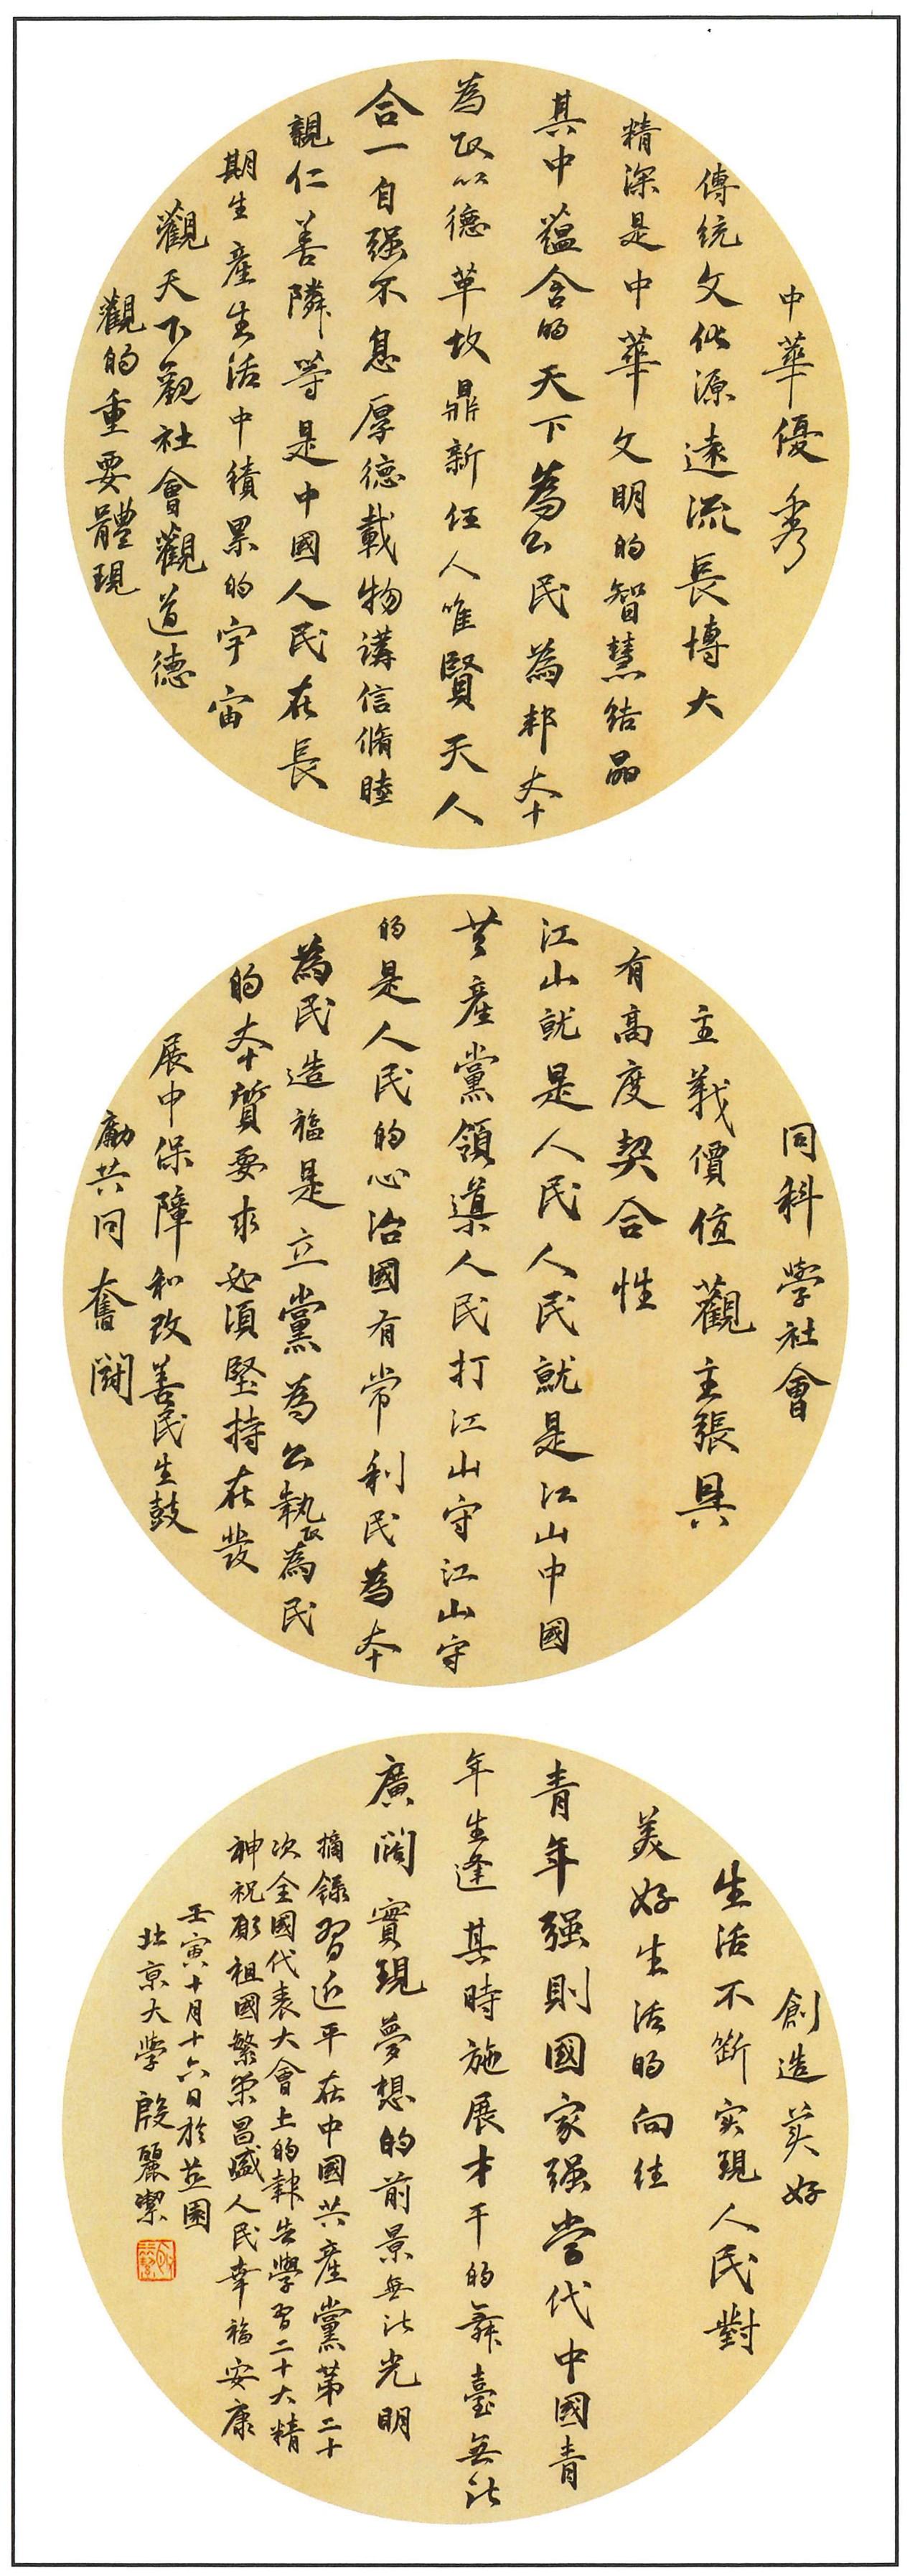 中華優秀
傳統文化源遠流長博大
精深是中華文明的智慧結晶
其中蘊含的天下為公民為邦本
為政以德革故鼎新任人唯賢天人
合一自强不息厚德載物講信脩睦
親仁善隣等是中國人民在長
期生產生活中積累的宇宙
觀天下觀社會觀道德
觀的重要體現
同科學社會
主義價值觀主張具
有高度契合性
江山就是人民人民就是江山中國
共產黨領導人民打江山守江山守
的是人民的心治國有常利民為本
為民造福是立黨為公執政為民
的本質要求必須堅持在發
展中保障和改善民生鼓
勵共同奮鬪
創造美好
生活不斷实現人民對
美好生活的向往
青年强則國家强當代中國青
年生逢其時施展才干的舞臺無比
廣闊實現夢想的前景無比光明
摘錄習近平在中國共產黨第二十
次全國代表大會上的報告學習二十大精
神祝願祖國繁榮昌盛人民幸福安康
壬寅十月十六日於燕園
北京大學殷麗潔